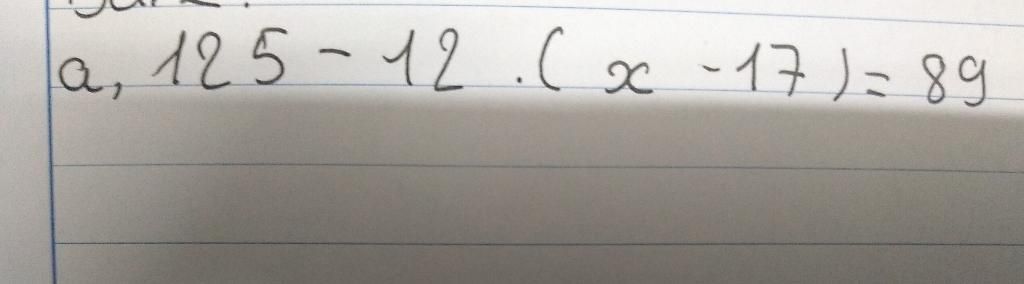 a, 125 - 12 . ( x - 17 ) = 89